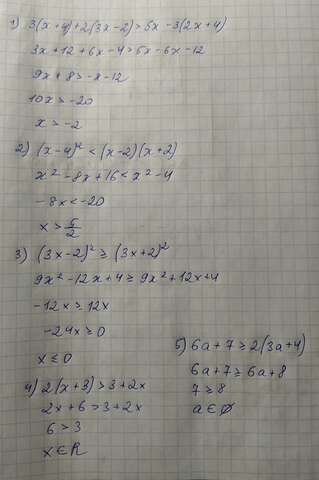 1) 3(x+4)+2(3x-2)>5x-3(2x+4)
3x+12+6x-4>5x-6x-12
9x+8>-x-12
10x>-20
x>-2
2) (x-4)²<(x-2)(x+2)
x²-8x+16<x²-4
-8x<-20
x>5/2
3) (3x-2)²≥(3x+2)²
9x²-12x+4≥9x²+12x+4
-12x≥12x
-24x≥0
x≤0
4) 2(x+3)>3+2x
2x+6>3+2x
6>3
x∈R
5) 6a+7≥2(3a+4)
6a+7≥6a+8
7≥8
a∈∅